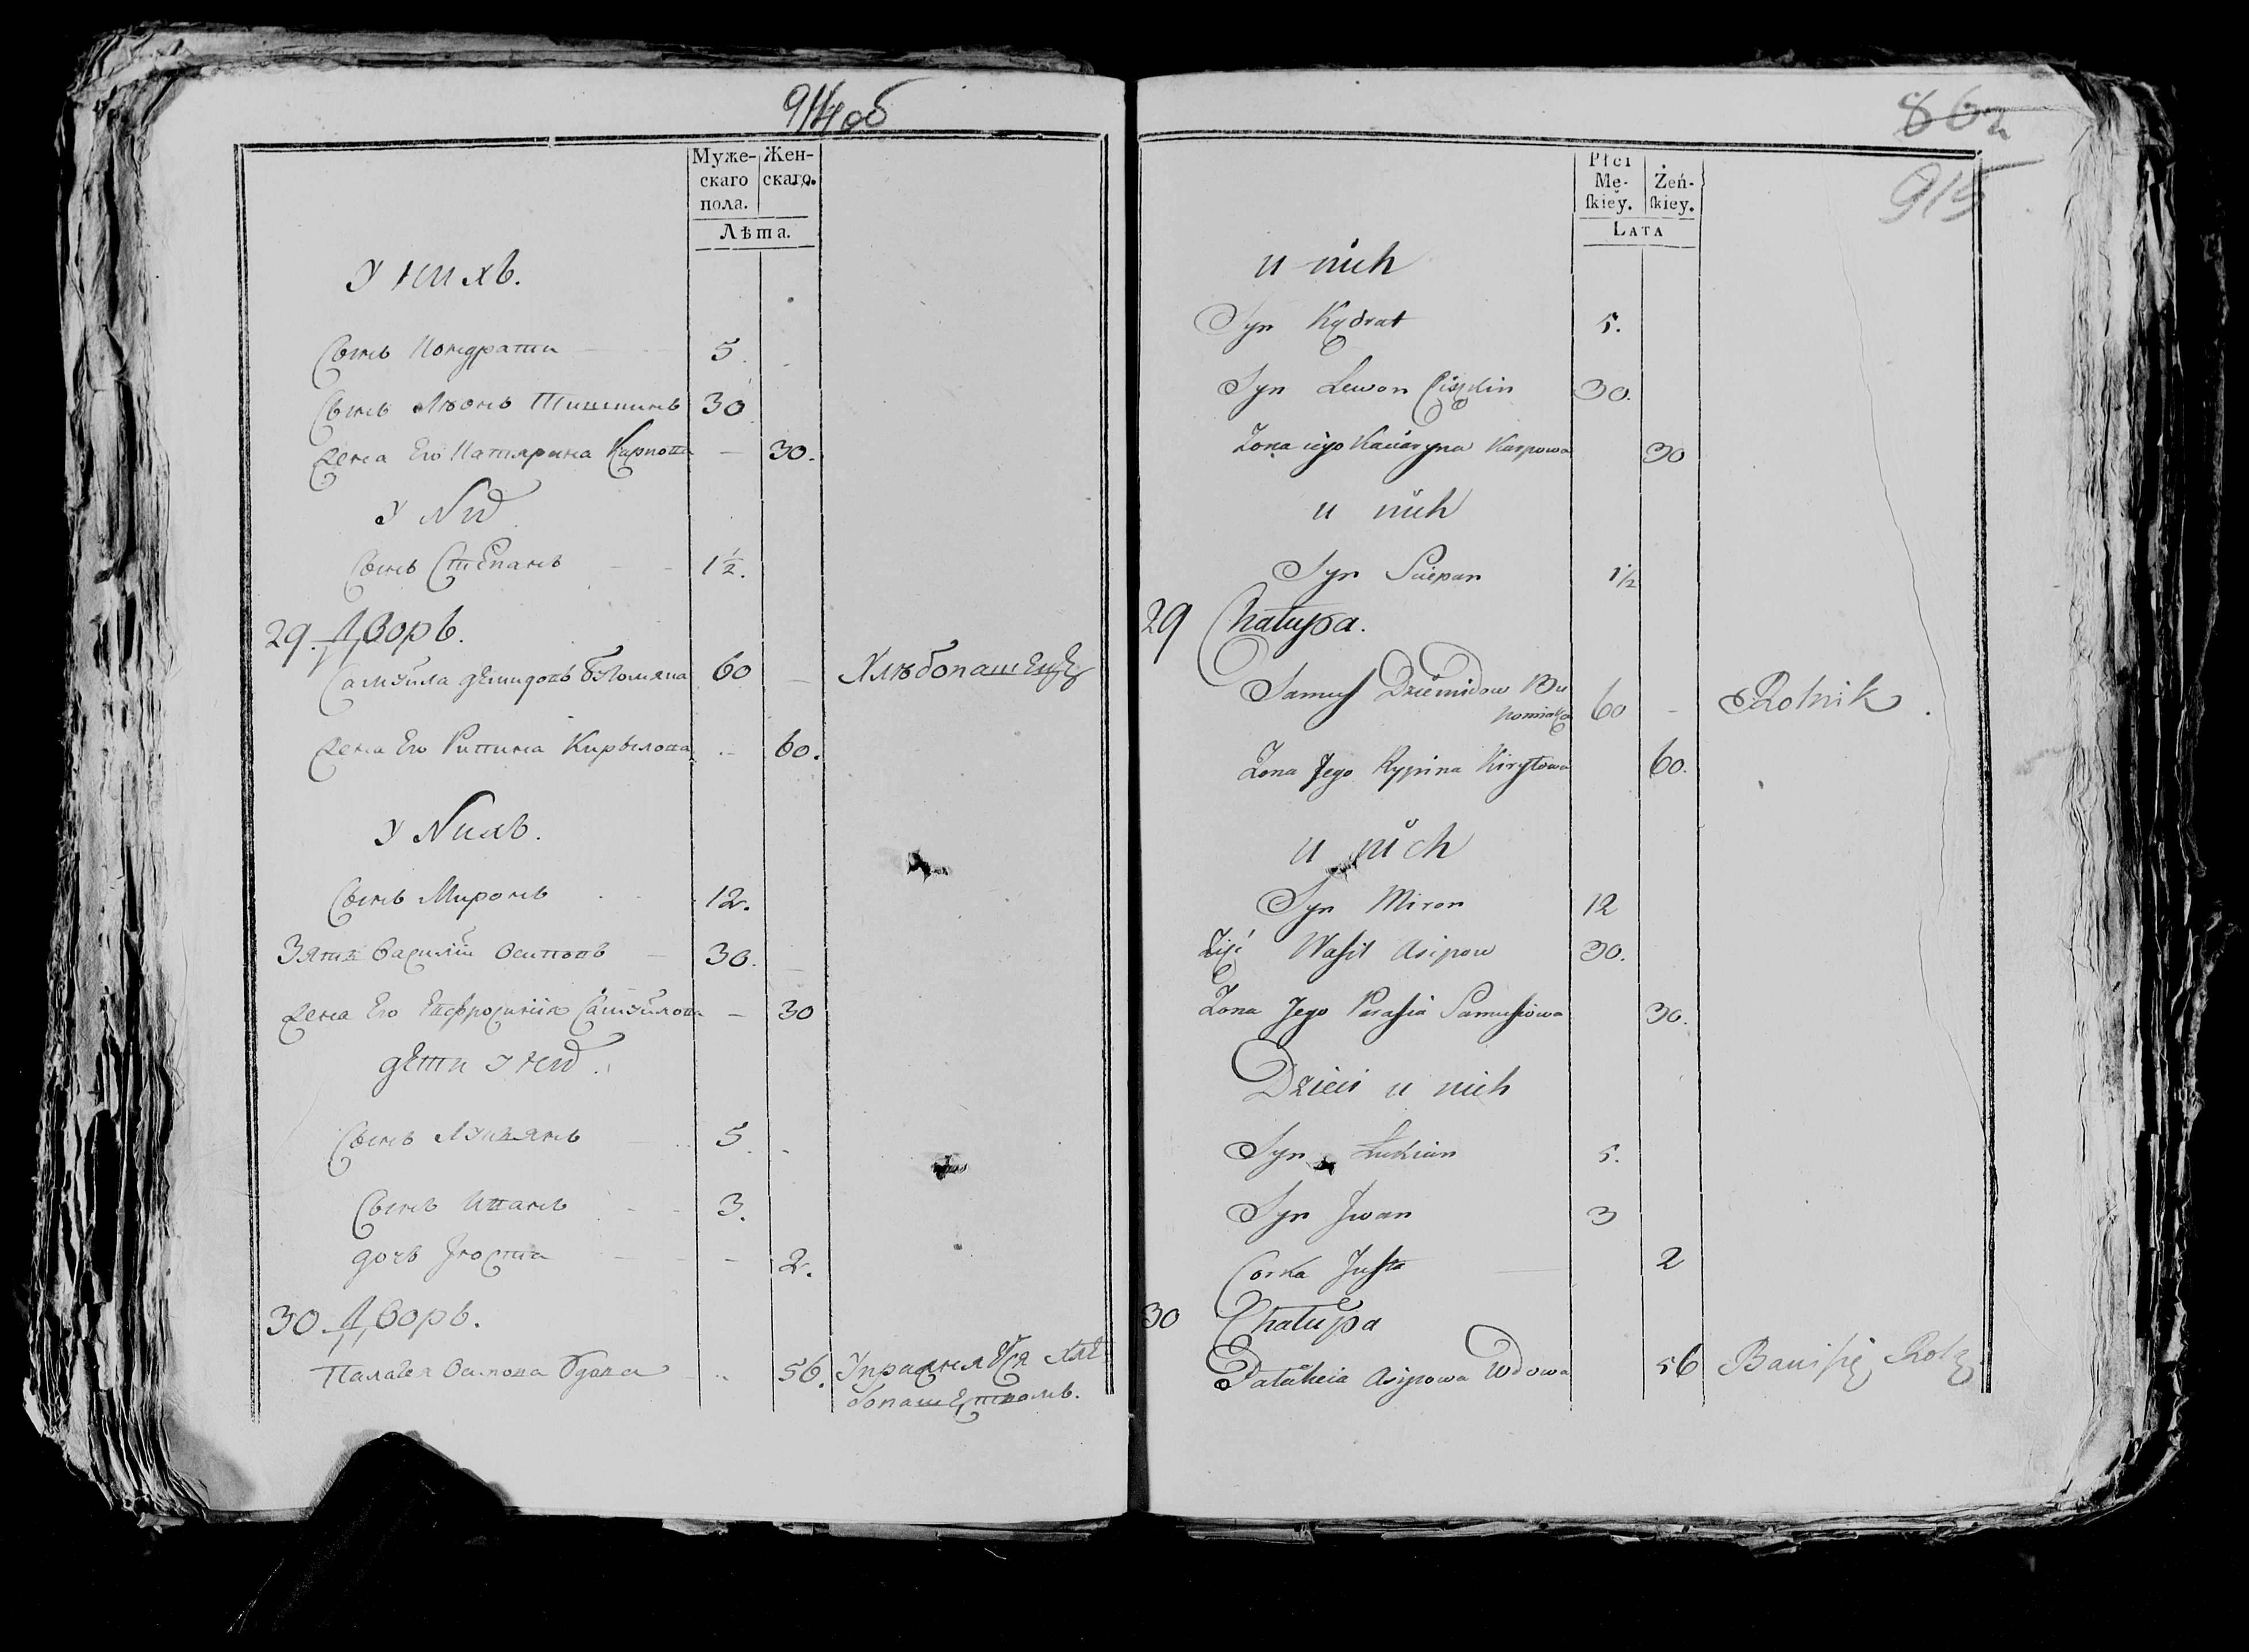 914 об
Муже-
скаго
пола.
Жен-
скаго.
Лѣта.
У нихъ.
Сынъ Кондрати 5.
Сынъ Лѣонъ Тишкинъ 30
Жена Его Катярина Карпова — 30.
У них
Сынъ Степанъ 1½.
29. Дворъ.
Самуйла Демидовъ 60 — Хлѣбопашецъ
Жена Его Рипина Кирылова 60.
У Нихъ.
Сынъ Миронъ 12.
Зять Василій Осиповъ — 30.
Жена Его Евфросинія Самуйлова — 30
Дети у них
Сынъ Лукянъ 5.
Сынъ Иванъ 3.
дочь Юста 2.
30. Дворъ.
Палагея Осипова Вдова 56. Упражняеся хле
бопашествомъ.
86
915
Płci
Mę-
ſkiey.
Żeń-
ſkiey.
Lata
u nich
Syn Kądrat 5.
Syn Lewon Ciszkin 30.
Zona iego Kaciaryna Karpowa 30
u nich
Syn Sciepan 1½
29 Chałupa.
Samuś Dziemidow Bu 60 — Rolnik
Zona Jego Rypina Kiryłowa 60.
u nich
Syn Miron 12
Zięć Waſil Asipow 30.
Zona Jego Paraſia Samuſiowa 30.
Dzieci u nich
Syn Łukian 5.
Syn Jwan 3
Corka Juſta 2
30 Chałupa
Pałaheia Asipowa Wdowa 56 Bawi ſię Rolą